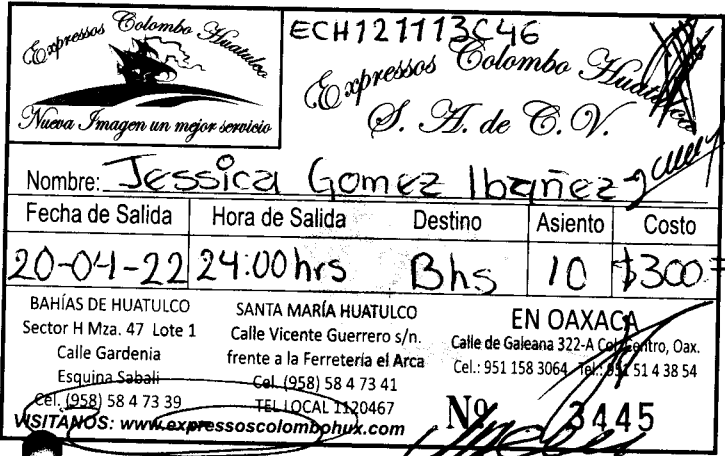 Expressos Colombo Huatulco
Nueva Imagen un mejor servicio
ECH121113C46
Expressos Colombo Huatulco
S. A. de C. V.
Nombre: Jessica Gomez Ibañez
Fecha de Salida Hora de Salida Destino Asiento Costo
20-04-22 24:00 hrs Bhs 10 $300=
BAHÍAS DE HUATULCO
Sector H Mza. 47 Lote 1
Calle Gardenia
Esquina Sabali
Cel. (958) 58 4 73 39
SANTA MARÍA HUATULCO
Calle Vicente Guerrero s/n.
frente a la Ferretería el Arca
Cel. (958) 58 4 73 41
TEL LOCAL 1120467
EN OAXACA
Calle de Galeana 322-A Col. Centro, Oax.
Cel.: 951 158 3064 Tel.: 951 51 4 38 54
VISITANOS: www.expressoscolombohux.com
Nº 3445